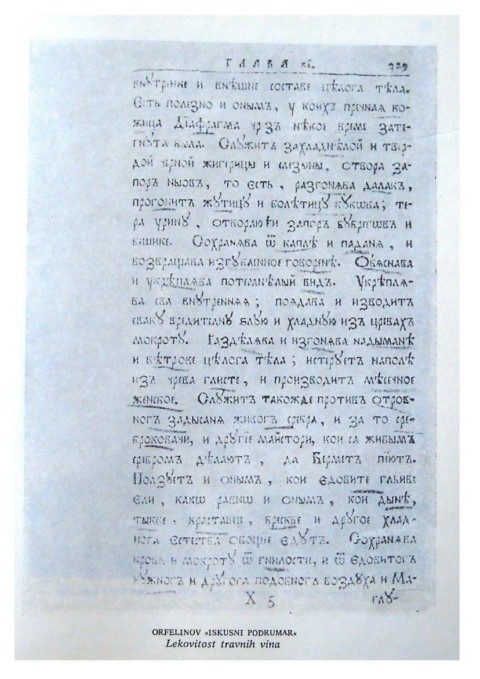 ГЛАВА
329
внутрнне и внѣшне составе цѣлога тѣла.
Есть полезно и онымъ, у коихъ пречная ко-
жица Діафрагма чрзъ нѣкое време зате-
гнута была. Служитъ захладнѣлой и твер-
дой чрной жигерицы и слезыны, ѿтвора за-
поръ ньіовъ, то есть, разгонява далакъ,
прогонитъ жутицу и болѣтицу кукова; те-
ра урину, ѿтворяюћи запоръ бубрегѡвъ и
бешике. Сохранява ѿ каплѣ и паданя, и
возвращава изгубленное говоренѣ. Обяснава
и укрѣплява потемнѣлый видъ. Укрѣпля-
ва сва внутренняя; поядава и изводитъ
сваку вредителну ѕлую и хладную изъ цревахъ
мокроту. Раздѣлява и изгонява надыманѣ
и вѣтрове цѣлога тѣла; истеруетъ наполѣ
изъ чрева глисте, и производитъ мѣсечное
женское. Служитъ такожде противъ ѿтров-
ногъ задысаня живогъ сребра, и за то сре-
броковачи, и другіе майстори, кои са живымъ
сребромъ дѣлаютъ, да Бермет піютъ.
Ползуетъ и онымъ, кои едовите гльиве
ели, какѡ равнѡ и онымъ, кои дынѣ,
тыкве, краставце, брескве и другое хлад-
нога естества овощіе едутъ. Сохранява
кровь и мокроту ѿ гнилости, и ѿ едовитогъ
кужногъ и другога подобнога воздуха и Ма-
X 5
глу-
ORFELINOV »ISKUSNI PODRUMAR«
Lekovitost travnih vina